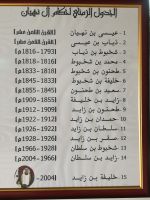 الجدول الزمني لحكام آل نهيان
1 - عيسى بن نهيان [القرن الثامن عشر]
2 - ذياب بن عيسى [القرن الثامن عشر]
3 - شخبوط بن ذياب [1793-1816م]
4 - محمد بن شخبوط [1816-1818م]
5 - طحنون بن شخبوط [1818-1833م]
6 - خليفة بن شخبوط [1833-1845م]
7 - سعيد بن طحنون [1845-1855م]
8 - زايد بن خليفة [1855-1909م]
9 - طحنون بن زايد [1909-1912م]
10 - حمدان بن زايد [1912-1922م]
11 - سلطان بن زايد [1922-1926م]
12 - صقر بن زايد [1926-1928م]
13 - شخبوط بن سلطان [1928-1966م]
14 - زايد بن سلطان [1966-2004م]
15 - خليفة بن زايد [2004-